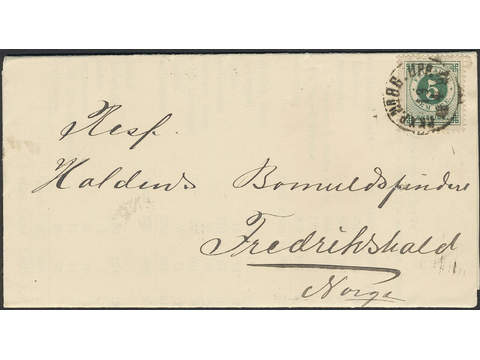 Resp.
Haldens Bomuldspinderi
Fredrikshald
Norge
5